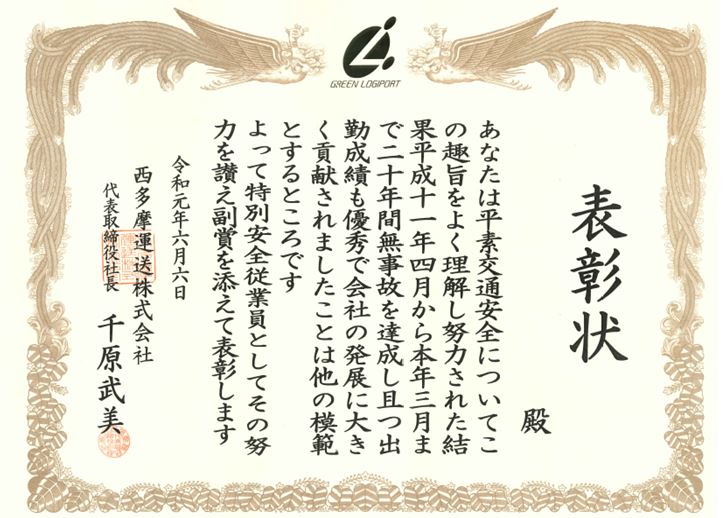 GREEN LOGIPORT
表彰状
殿
あなたは平素交通安全についてこ
の趣旨をよく理解し努力された結
果平成十一年四月から本年三月ま
で二十年間無事故を達成し且つ出
勤成績も優秀で会社の発展に大き
く貢献されましたことは他の模範
とするところです
よって特別安全従業員としてその努
力を讃え副賞を添えて表彰します
令和元年六月六日
西多摩運送株式会社
代表取締役社長 千原武美